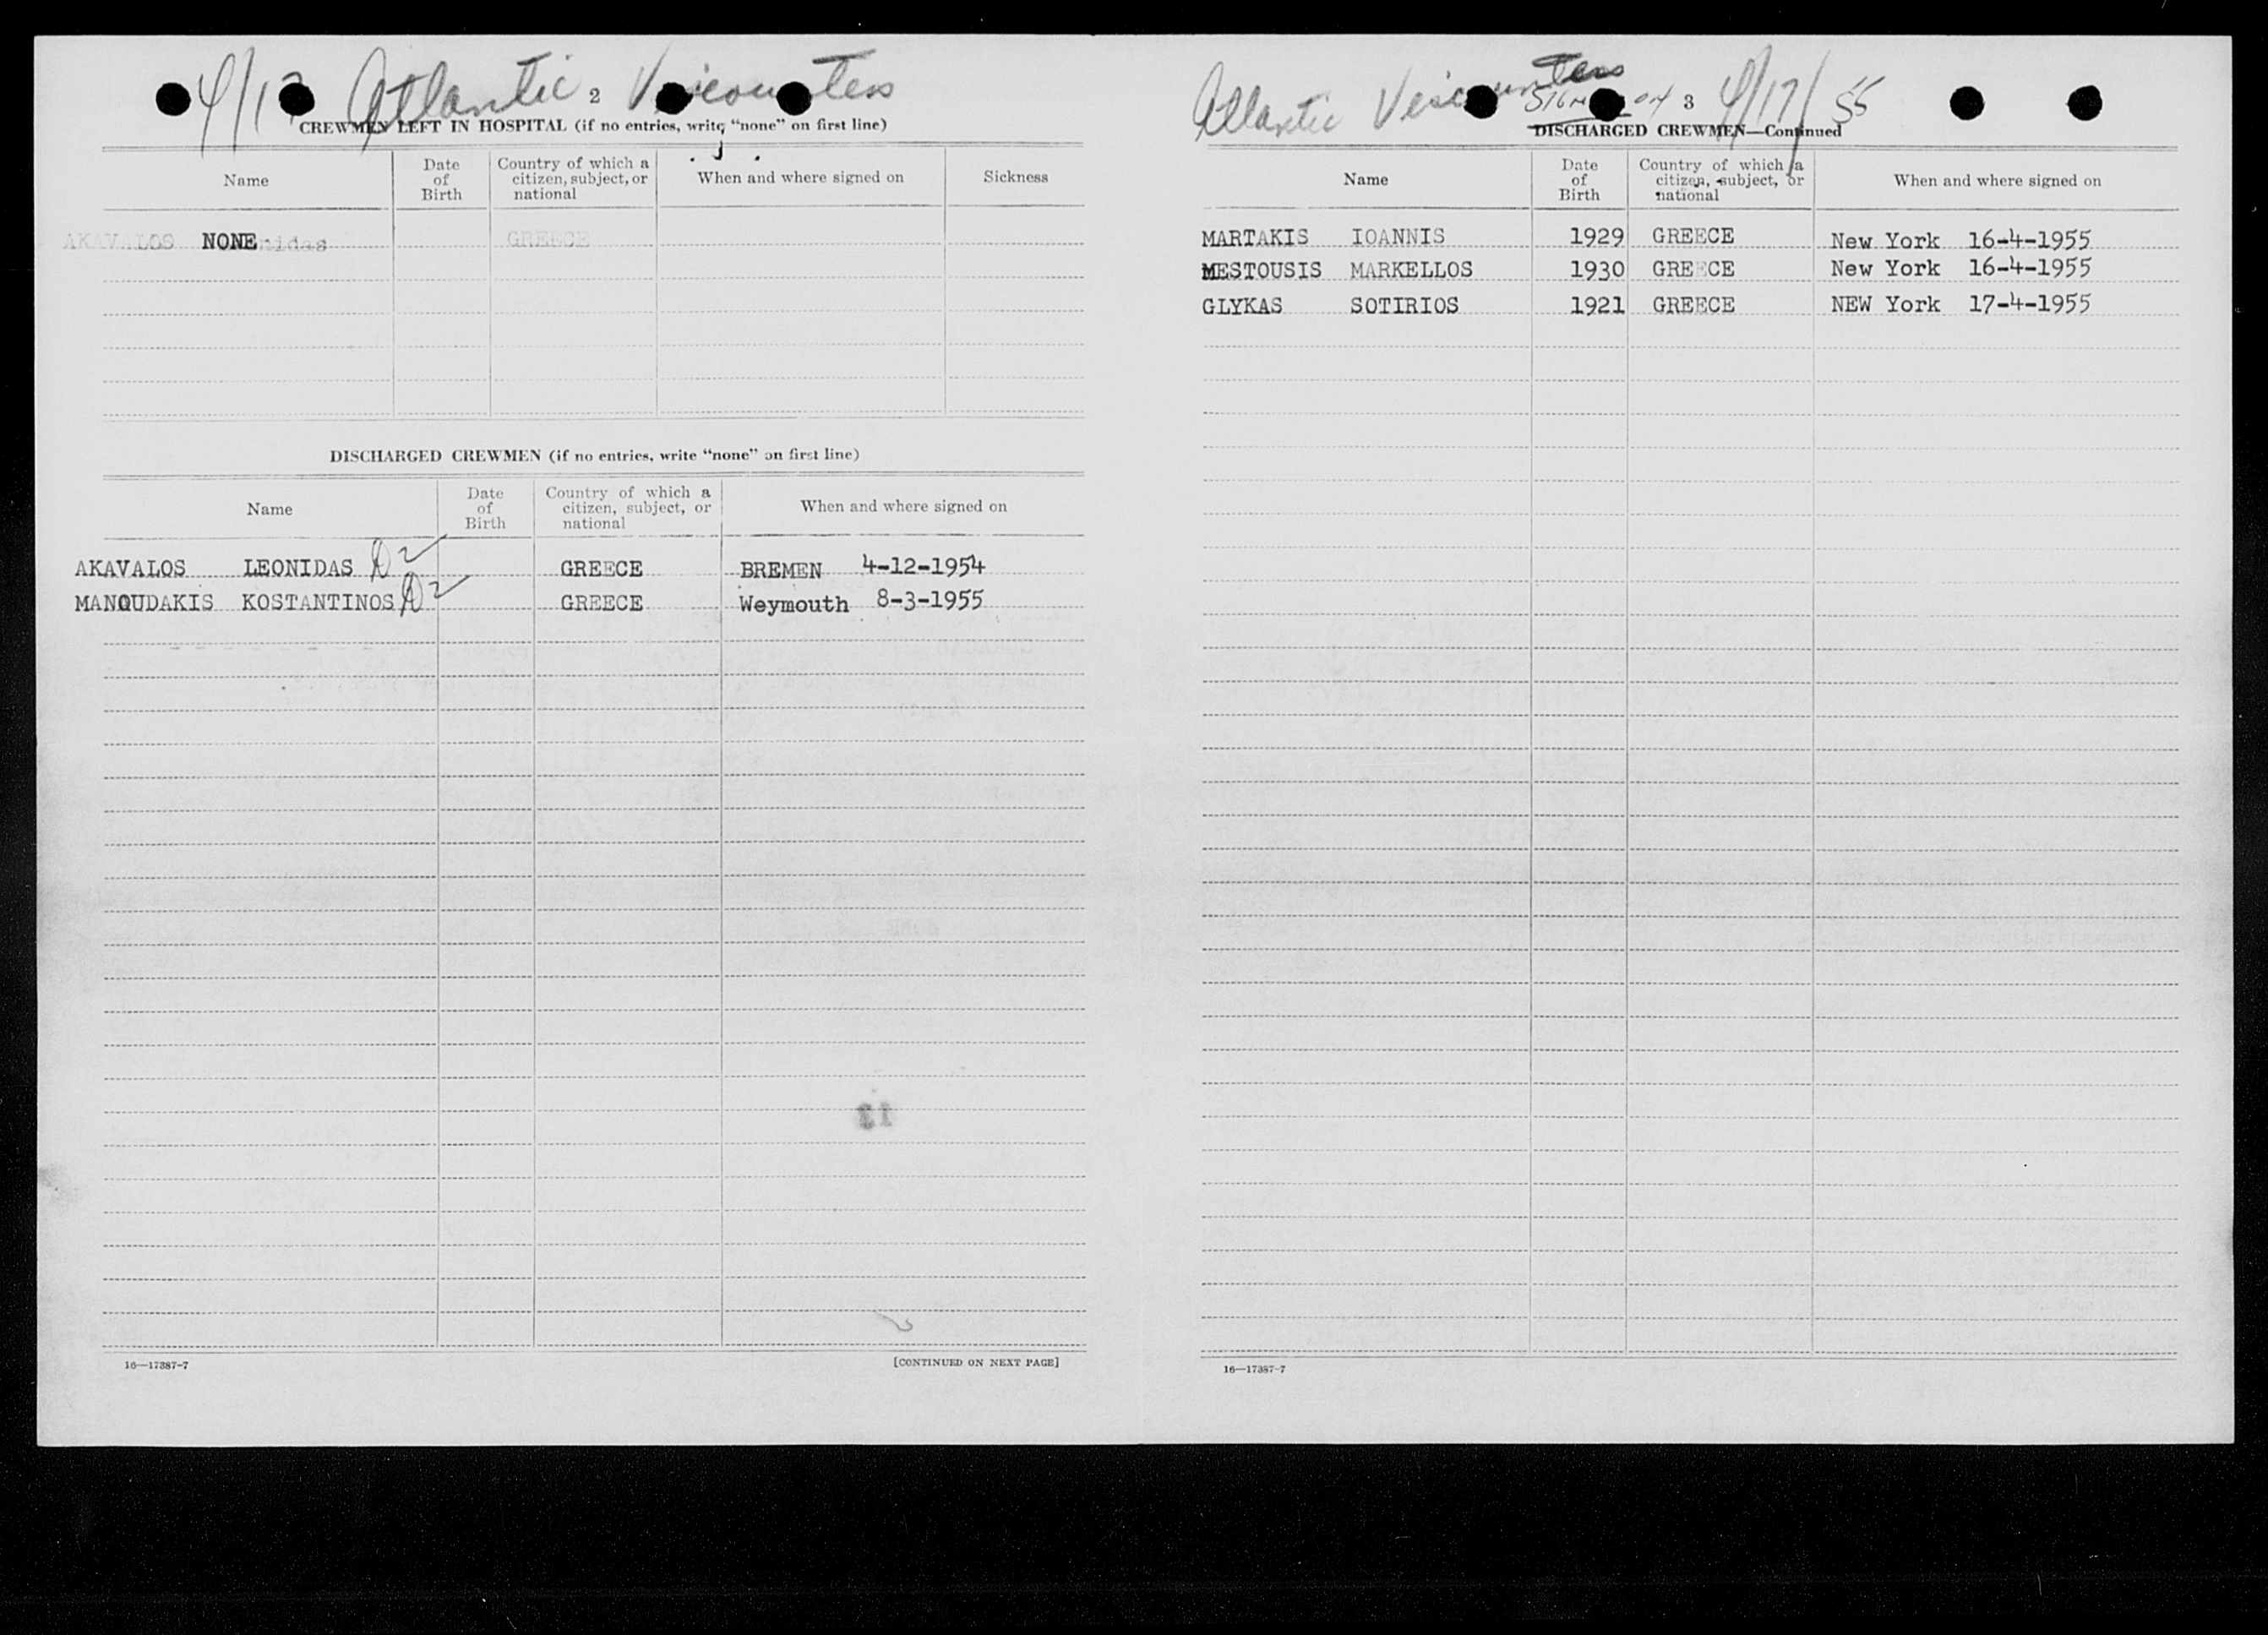 4/17 Atlantic 2 Viscountess
CREWMEN LEFT IN HOSPITAL (if no entries, write "none" on first line)
Name
Date of Birth
Country of which a citizen, subject, or national
When and where signed on
Sickness
AKAVALOS NONE GREECE
DISCHARGED CREWMEN (if no entries, write "none" on first line)
Name
Date of Birth
Country of which a citizen, subject, or national
When and where signed on
AKAVALOS LEONIDAS D2 GREECE BREMEN 4-12-1954
MANOUDAKIS KOSTANTINOS D2 GREECE Weymouth 8-3-1955
13
16—17387-7
[CONTINUED ON NEXT PAGE]
Atlantic Viscountess 3 4/17/55
SIGNED ON
DISCHARGED CREWMEN—Continued
Name
Date of Birth
Country of which a citizen, subject, or national
When and where signed on
MARTAKIS IOANNIS 1929 GREECE New York 16-4-1955
MESTOUSIS MARKELLOS 1930 GREECE New York 16-4-1955
GLYKAS SOTIRIOS 1921 GREECE NEW York 17-4-1955
16—17387-7